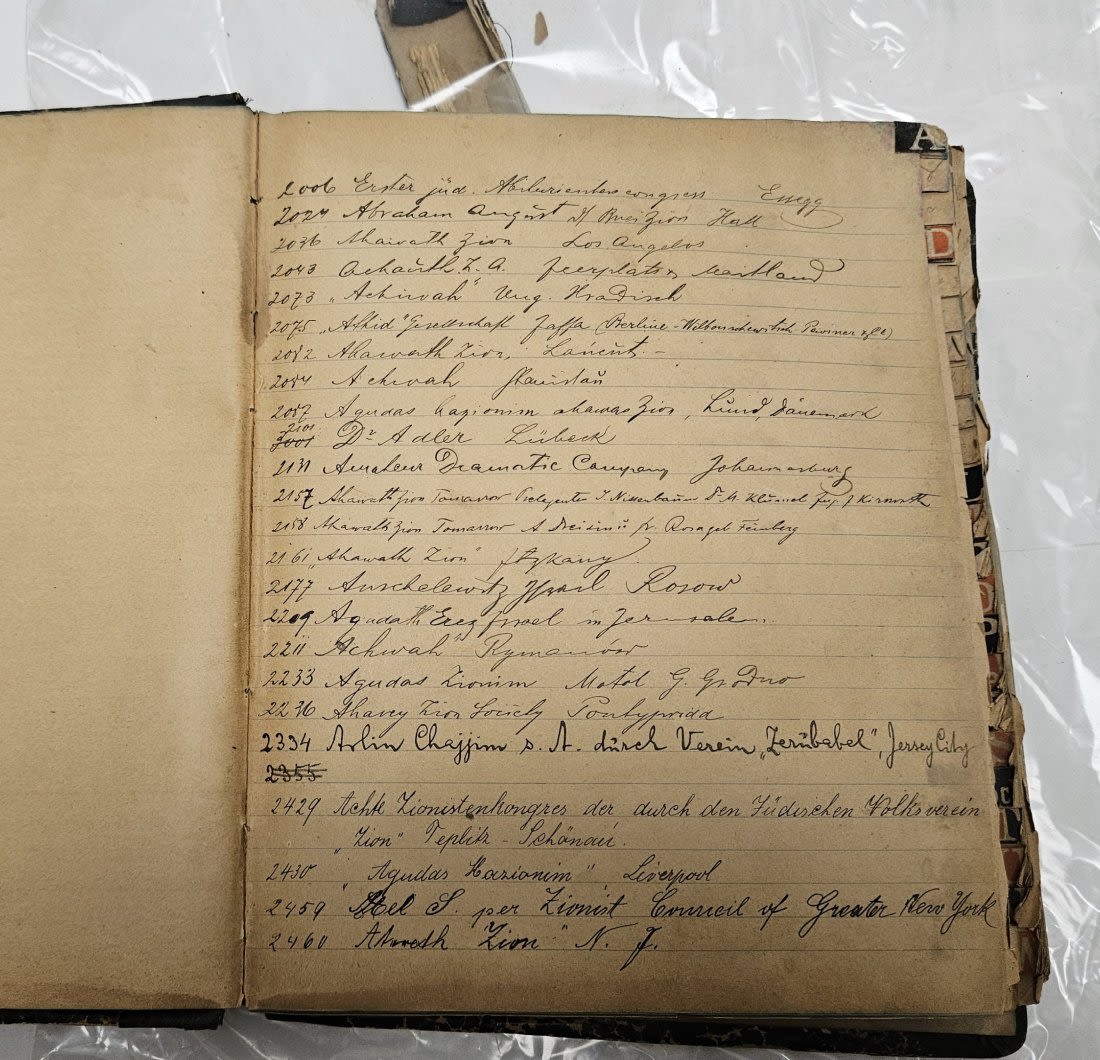 A
D
2006 Erster jüd. Abiturientencongress Essegg
2024 Abraham August Bnei Zion Hall
2036 Ahawath Zion Los Angelos
2043 Achauth Z. A. Maitland
2073 „Achiwah" Ung. Hradisch
2075 „Athid" Gesellschaft Jaffa (Berline - Pewsner
2082 Ahawath Zion, Lancut. -
2084 Achwah Stanislau
2087 Agudas hazionim ahawas Zion, Lund, Dänemark
2101
3001 Dr Adler Lübeck
2131 Amateur Dramatic Company Johannesburg
2157 Ahawath Zion Tomaszow Delegente J. Nissenbaum Dr.
2158 Ahawath Zion Tomaszow A Feinberg
2161 „Ahawath Zion"
2177 Anschelewitz Israel Rosow
2209 Agudath Erez Israel in Jerusalem.
2211 „Achwah" Rymanów
2233 Agudas Zionim Motol G. Grodno
2236 Ahavey Zion Society Pontypridd
2334 Arlin Chajjim s. A. dürch Verein „Zerübabel", Jersey City
2355
2429 Achte Zionistenkongres der durch den Jüdischen Volksverein
„Zion" Teplitz - Schönau.
2430 „Agudas Hazionim" Liverpool
2459 Abel S. per Zionist Council of Greater New York
2460 Zion" N. J.